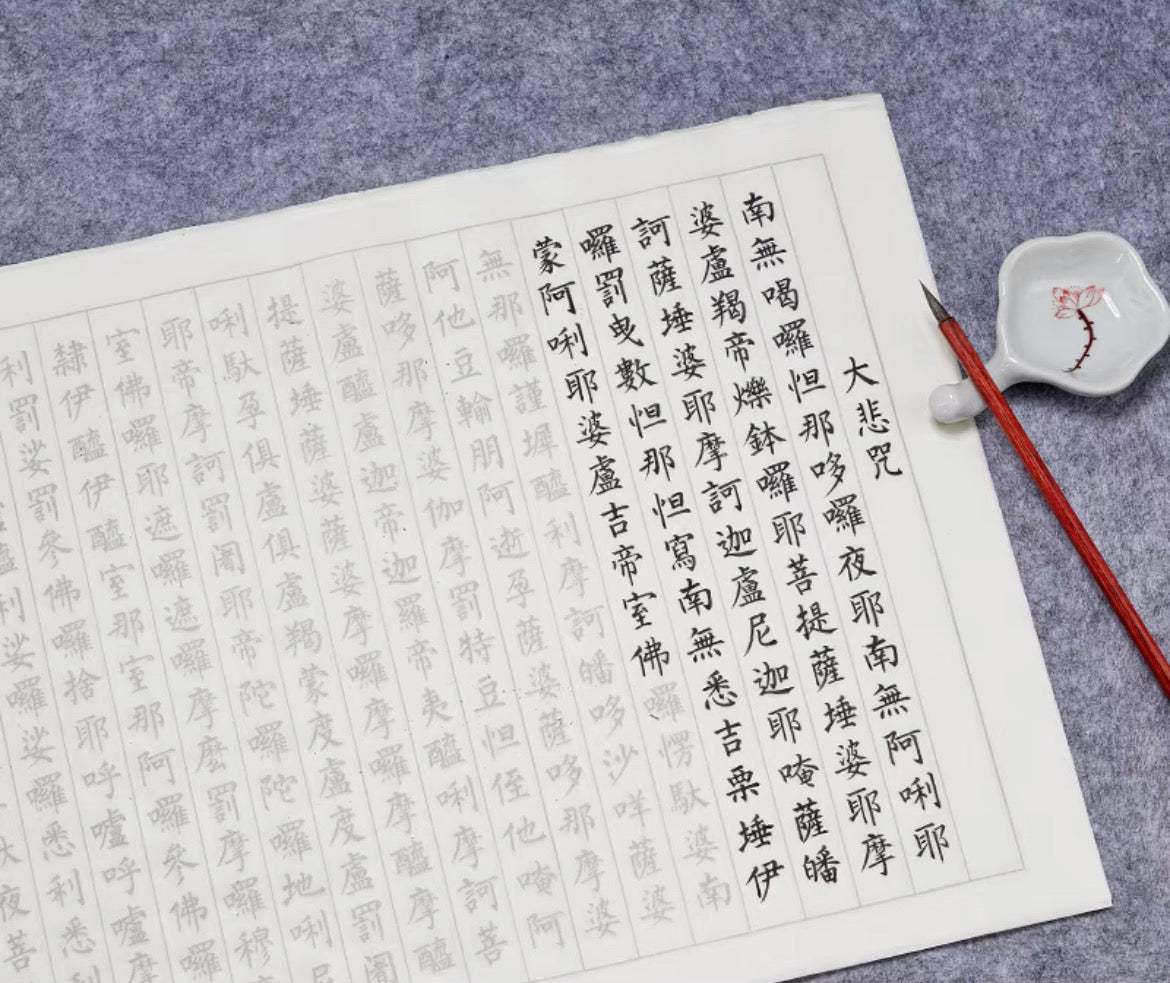 大悲咒
南無喝囉怛那哆囉夜耶南無阿唎耶
婆盧羯帝爍鉢囉耶菩提薩埵婆耶摩
訶薩埵婆耶摩訶迦盧尼迦耶唵薩皤
囉罰曳數怛那怛寫南無悉吉栗埵伊
蒙阿唎耶婆盧吉帝室佛囉愣馱婆南
無那囉謹墀醯利摩訶皤哆沙咩薩婆
阿他豆輸朋阿逝孕薩婆薩哆那摩婆
薩哆那摩婆伽摩罰特豆怛侄他唵阿
婆盧醯盧迦帝迦羅帝夷醯唎摩訶菩
提薩埵薩婆薩婆摩囉摩囉摩醯摩醯
唎馱孕俱盧俱盧羯蒙度盧度盧罰闍
耶帝摩訶罰闍耶帝陀囉陀囉地唎尼
室佛囉耶遮囉遮囉摩麼罰摩囉穆
隸伊醯伊醯室那室那阿囉參佛囉
利罰娑罰參佛囉捨耶呼嚧呼嚧摩
利娑囉娑囉悉利悉利
夜菩